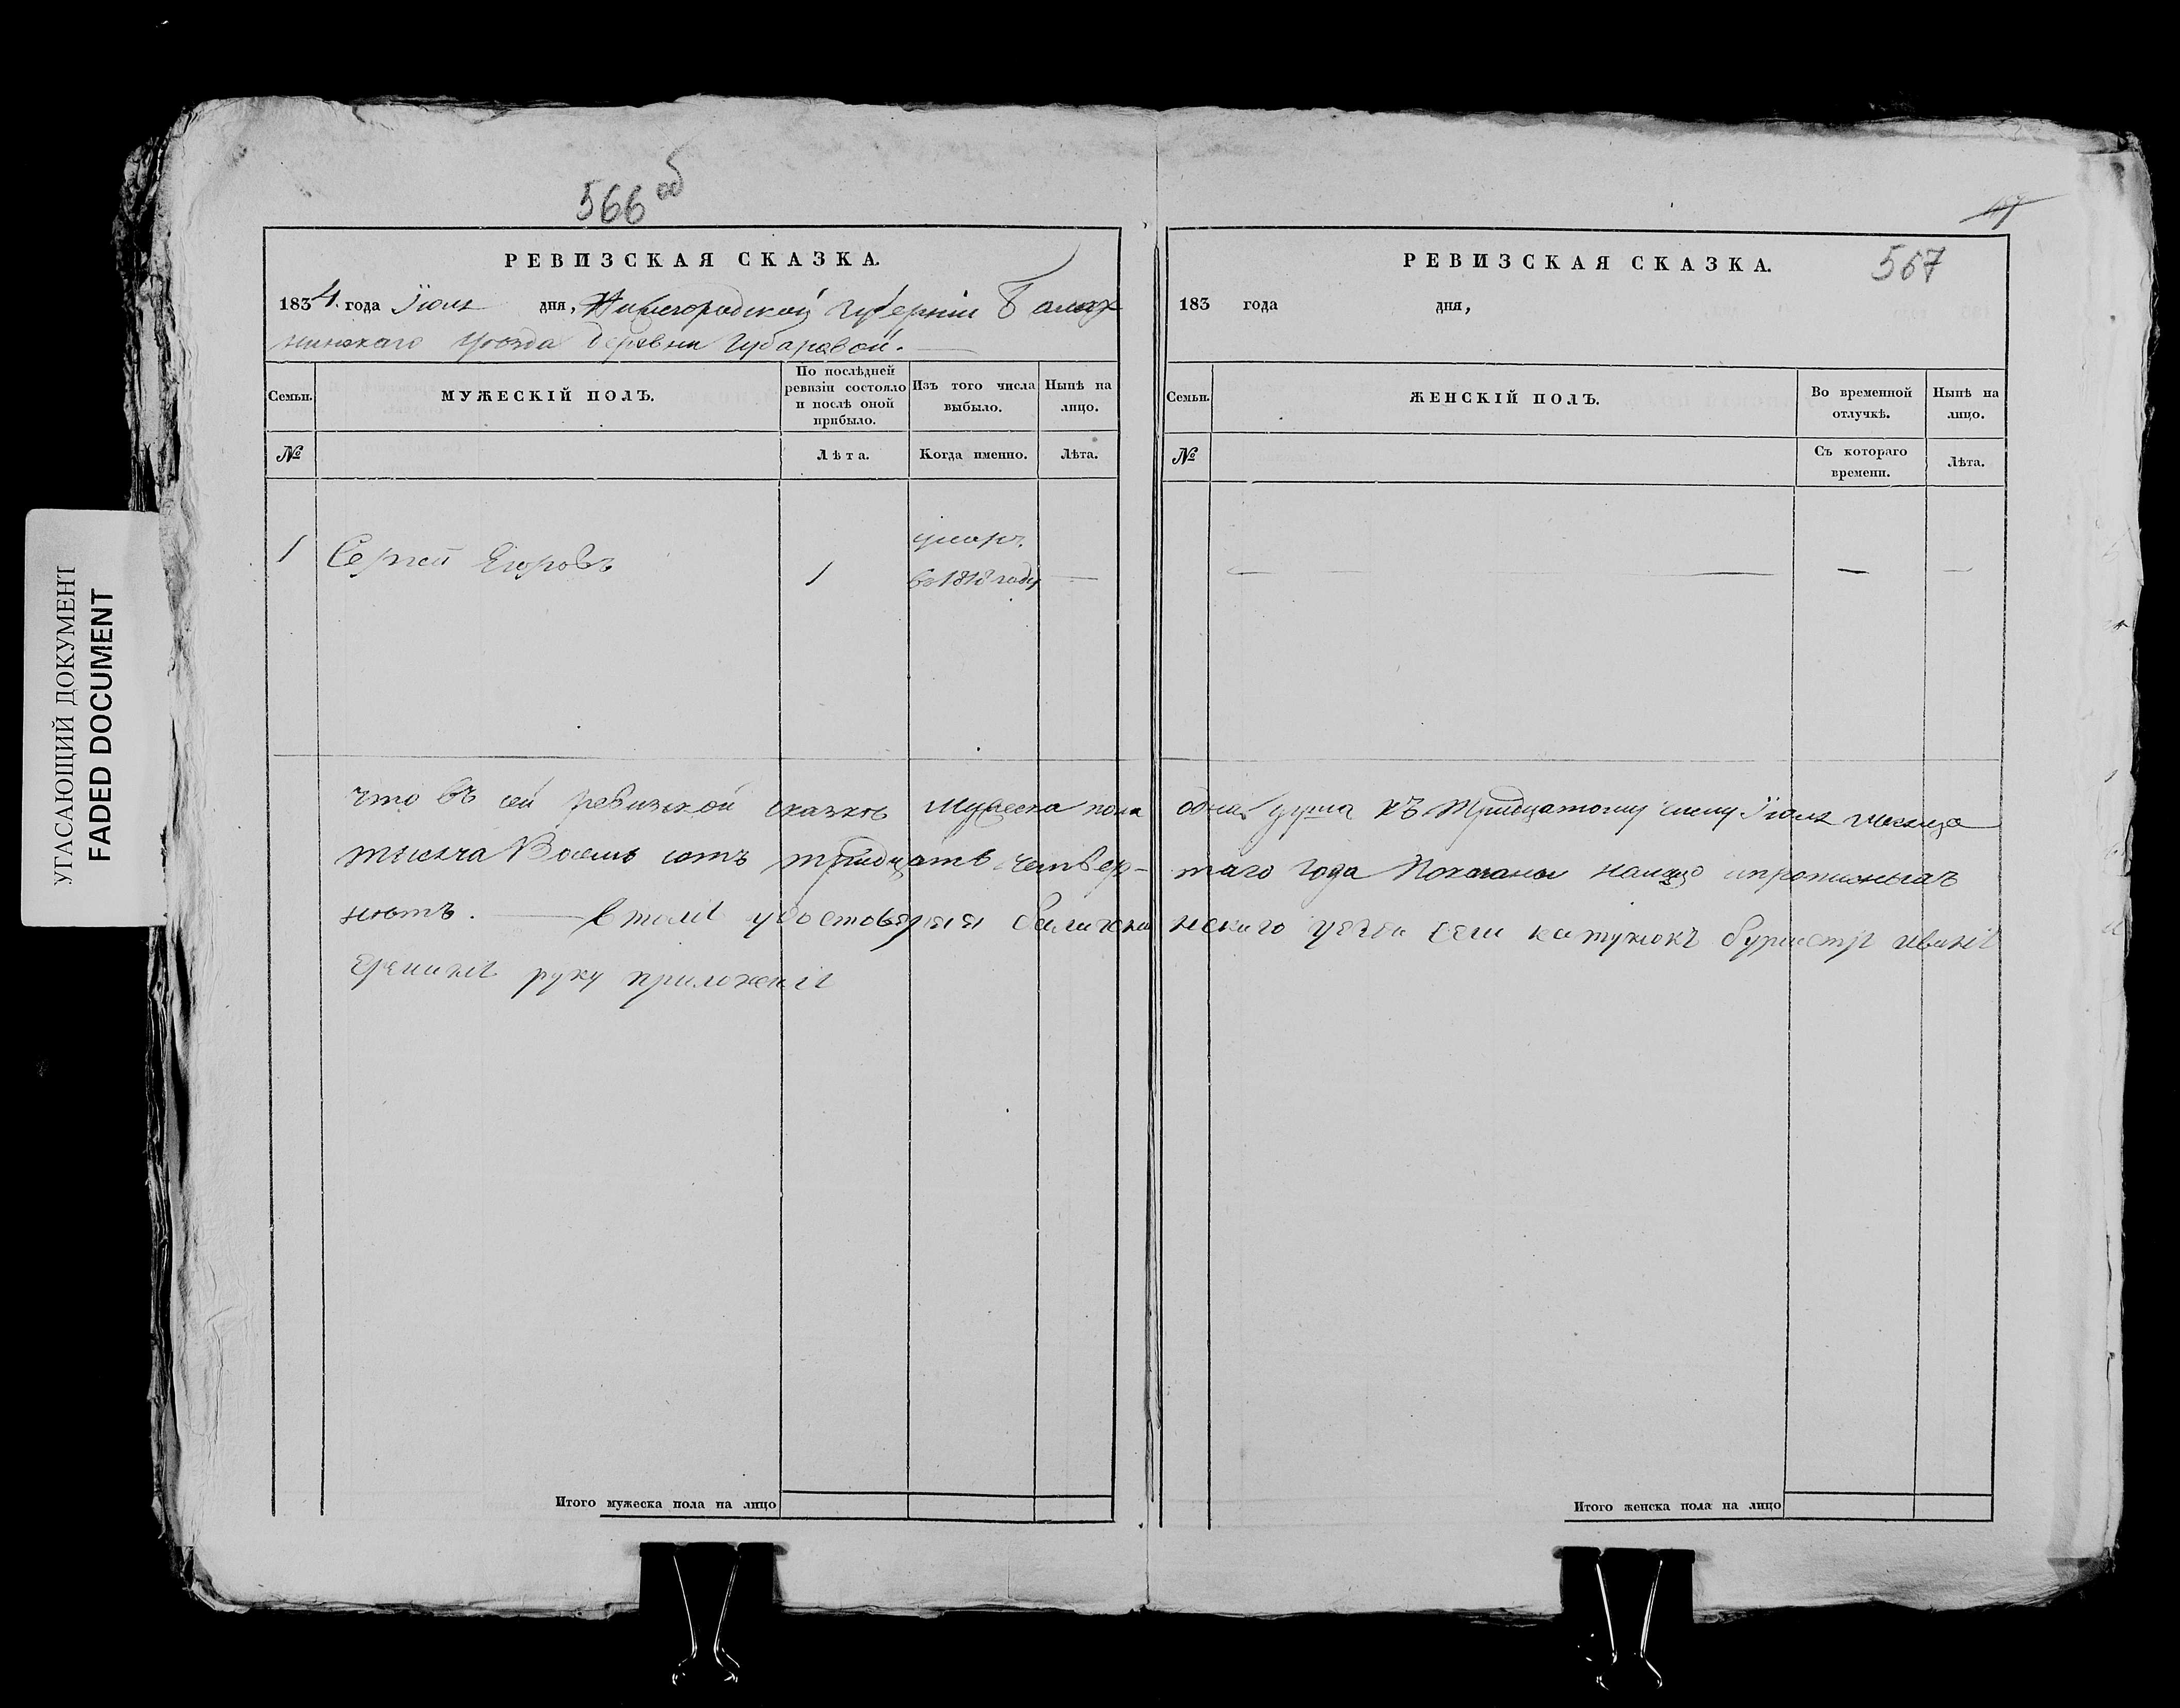 УГАСАЮЩИЙ ДОКУМЕНТ
FADED DOCUMENT
566 об
РЕВИЗСКАЯ СКАЗКА.
1834 года Июля дня, Нижегородской Губерніи Балах
нинскаго Уѣзда Деревни Губаревой.
Семьи.
МУЖЕСКІЙ ПОЛЪ.
По послѣдней ревизіи состояло и послѣ оной прибыло.
Изъ того числа выбыло.
Нынѣ на лицо.
№
Лѣта.
Когда именно.
Лѣта.
1 Сергей Егоровъ 1 умеръ
во 1818 году
Итого мужеска пола на лицо
567
РЕВИЗСКАЯ СКАЗКА.
183 года дня,
Семьи.
ЖЕНСКІЙ ПОЛЪ.
Во временной отлучкѣ.
Нынѣ на лицо.
№
Съ котораго времени.
Лѣта.
что въ сей ревизской сказкѣ Мужеска пола одна душа къ тридцатому числу Июля месяца
тысяча Восемь сотъ тридцать четвер- таго года Показаны
нѣтъ. — втомъ Балахни нскаго уезда села катунокъ бурмистръ иванъ
руку приложилъ
Итого женска пола на лицо